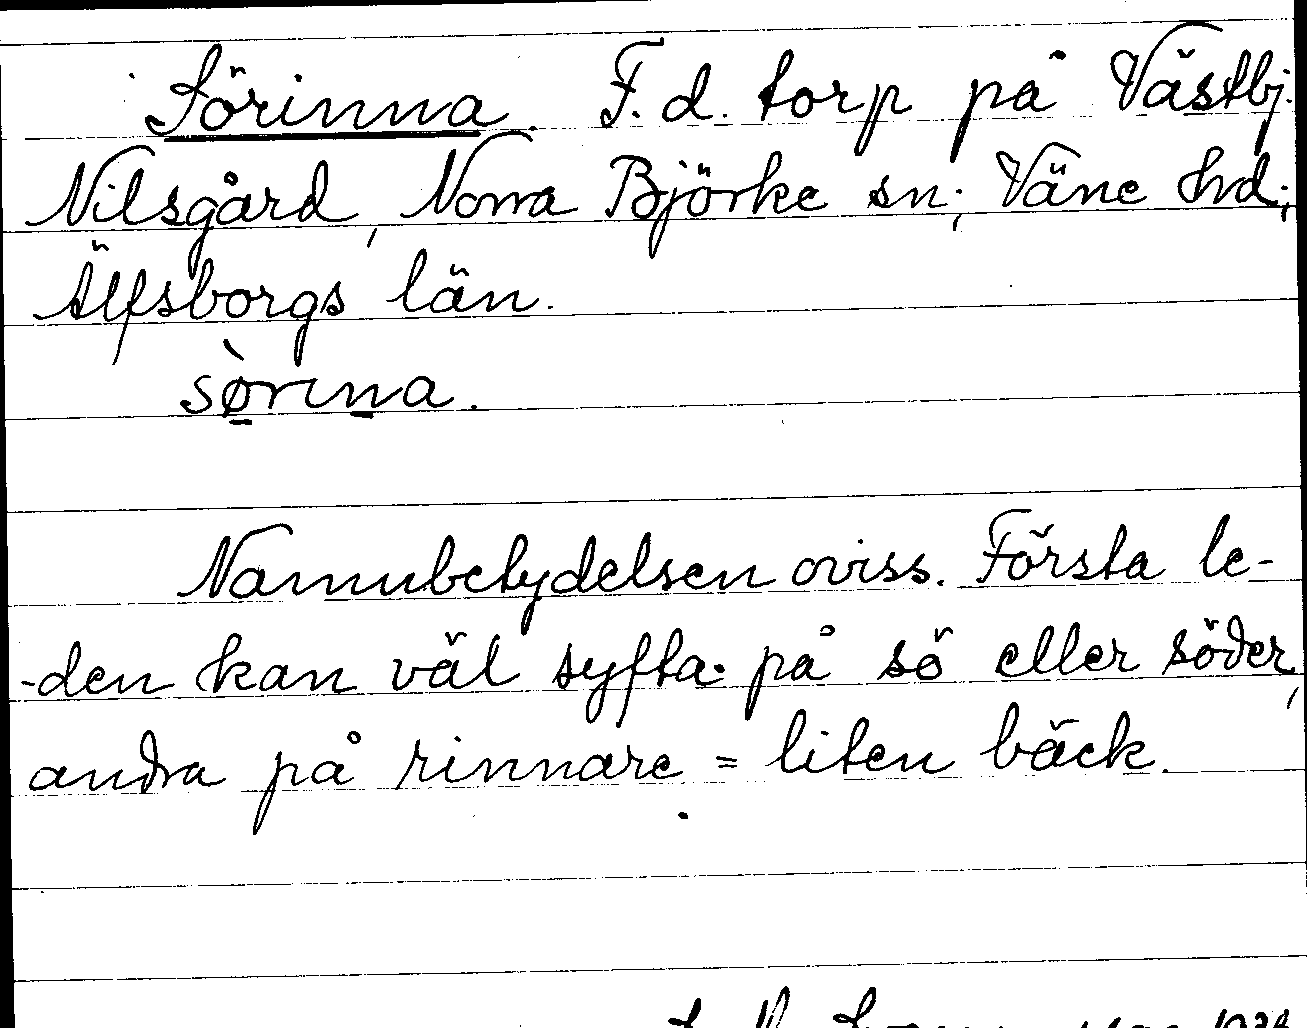 Sörinna. F.d. torp på Västbj.
Nilsgård, Norra Björke sn; Väne hd;
Älfsborgs län.
sø̀rɩna.
Namnbetydelsen oviss. Första le-
-den kan väl syfta på sö eller söder,
andra på rinnare = liten bäck.